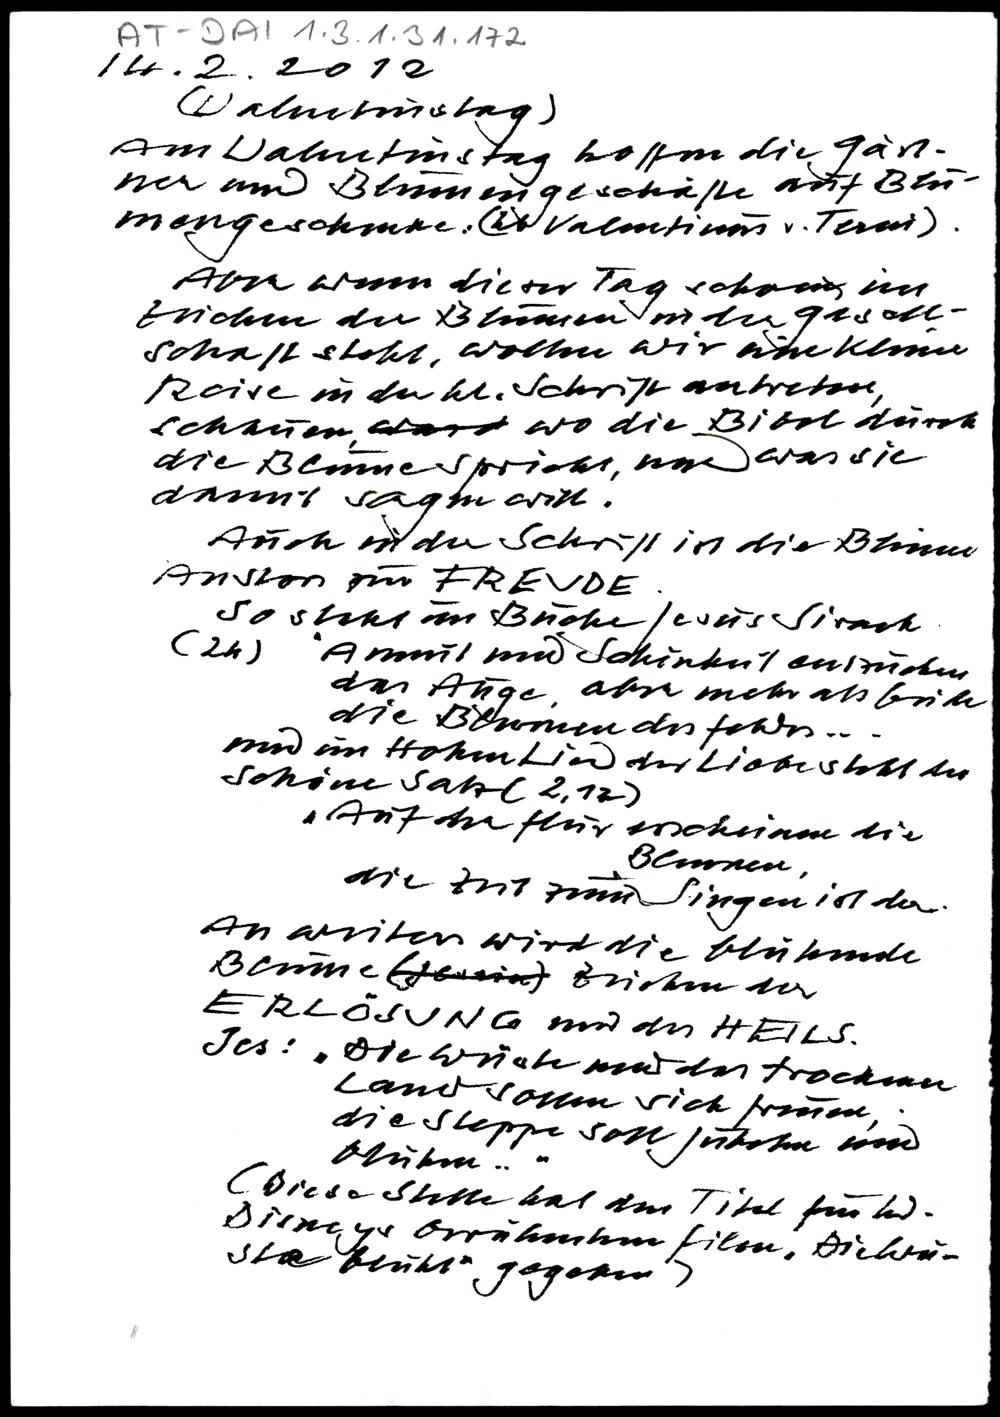 AT-DAI 1.3.1.31.172
14.2.2012
(Valentinstag)
Am Valentinstag hoffen die Gärt-
ner und Blumengeschäfte auf Blu-
mengeschenke. (hl Valentinus v. Terni).
Aber wenn dieser Tag schon im
Zeichen der Blumen in der Gesell-
schaft steht, wollen wir eine kleine
Reise in der hl. Schrift antreten,
schauen, wo die Bibel durch
die Blume spricht, und was sie
damit sagen will.
Auch in der Schrift ist die Blume
Anstoss zur FREUDE.
So steht im Buche Jesus Sirach
(24) "Anmut und Schönheit entzücken
das Auge, aber mehr als beide
die Blumen des Feldes...
und im Hohen Lied der Liebe steht der
schöne Satz (2,12)
"Auf der Flur erscheinen die
Blumen,
die Zeit zum Singen ist da.
An weiters wird die blühende
Blume Zeichen der
ERLÖSUNG und des HEILS.
Jes: "Die Wüste und das trockene
Land sollen sich freuen,
die Steppe soll jubeln und
blühen.."
(Diese Stelle hat den Titel für W.
Disneys berühmten Film "Die Wü-
ste blüht" gegeben)